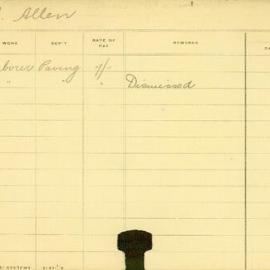 . Allen
WORK DEP'T RATE OF PAY REMARKS
bourer Paving 7/-
" " " Dismissed